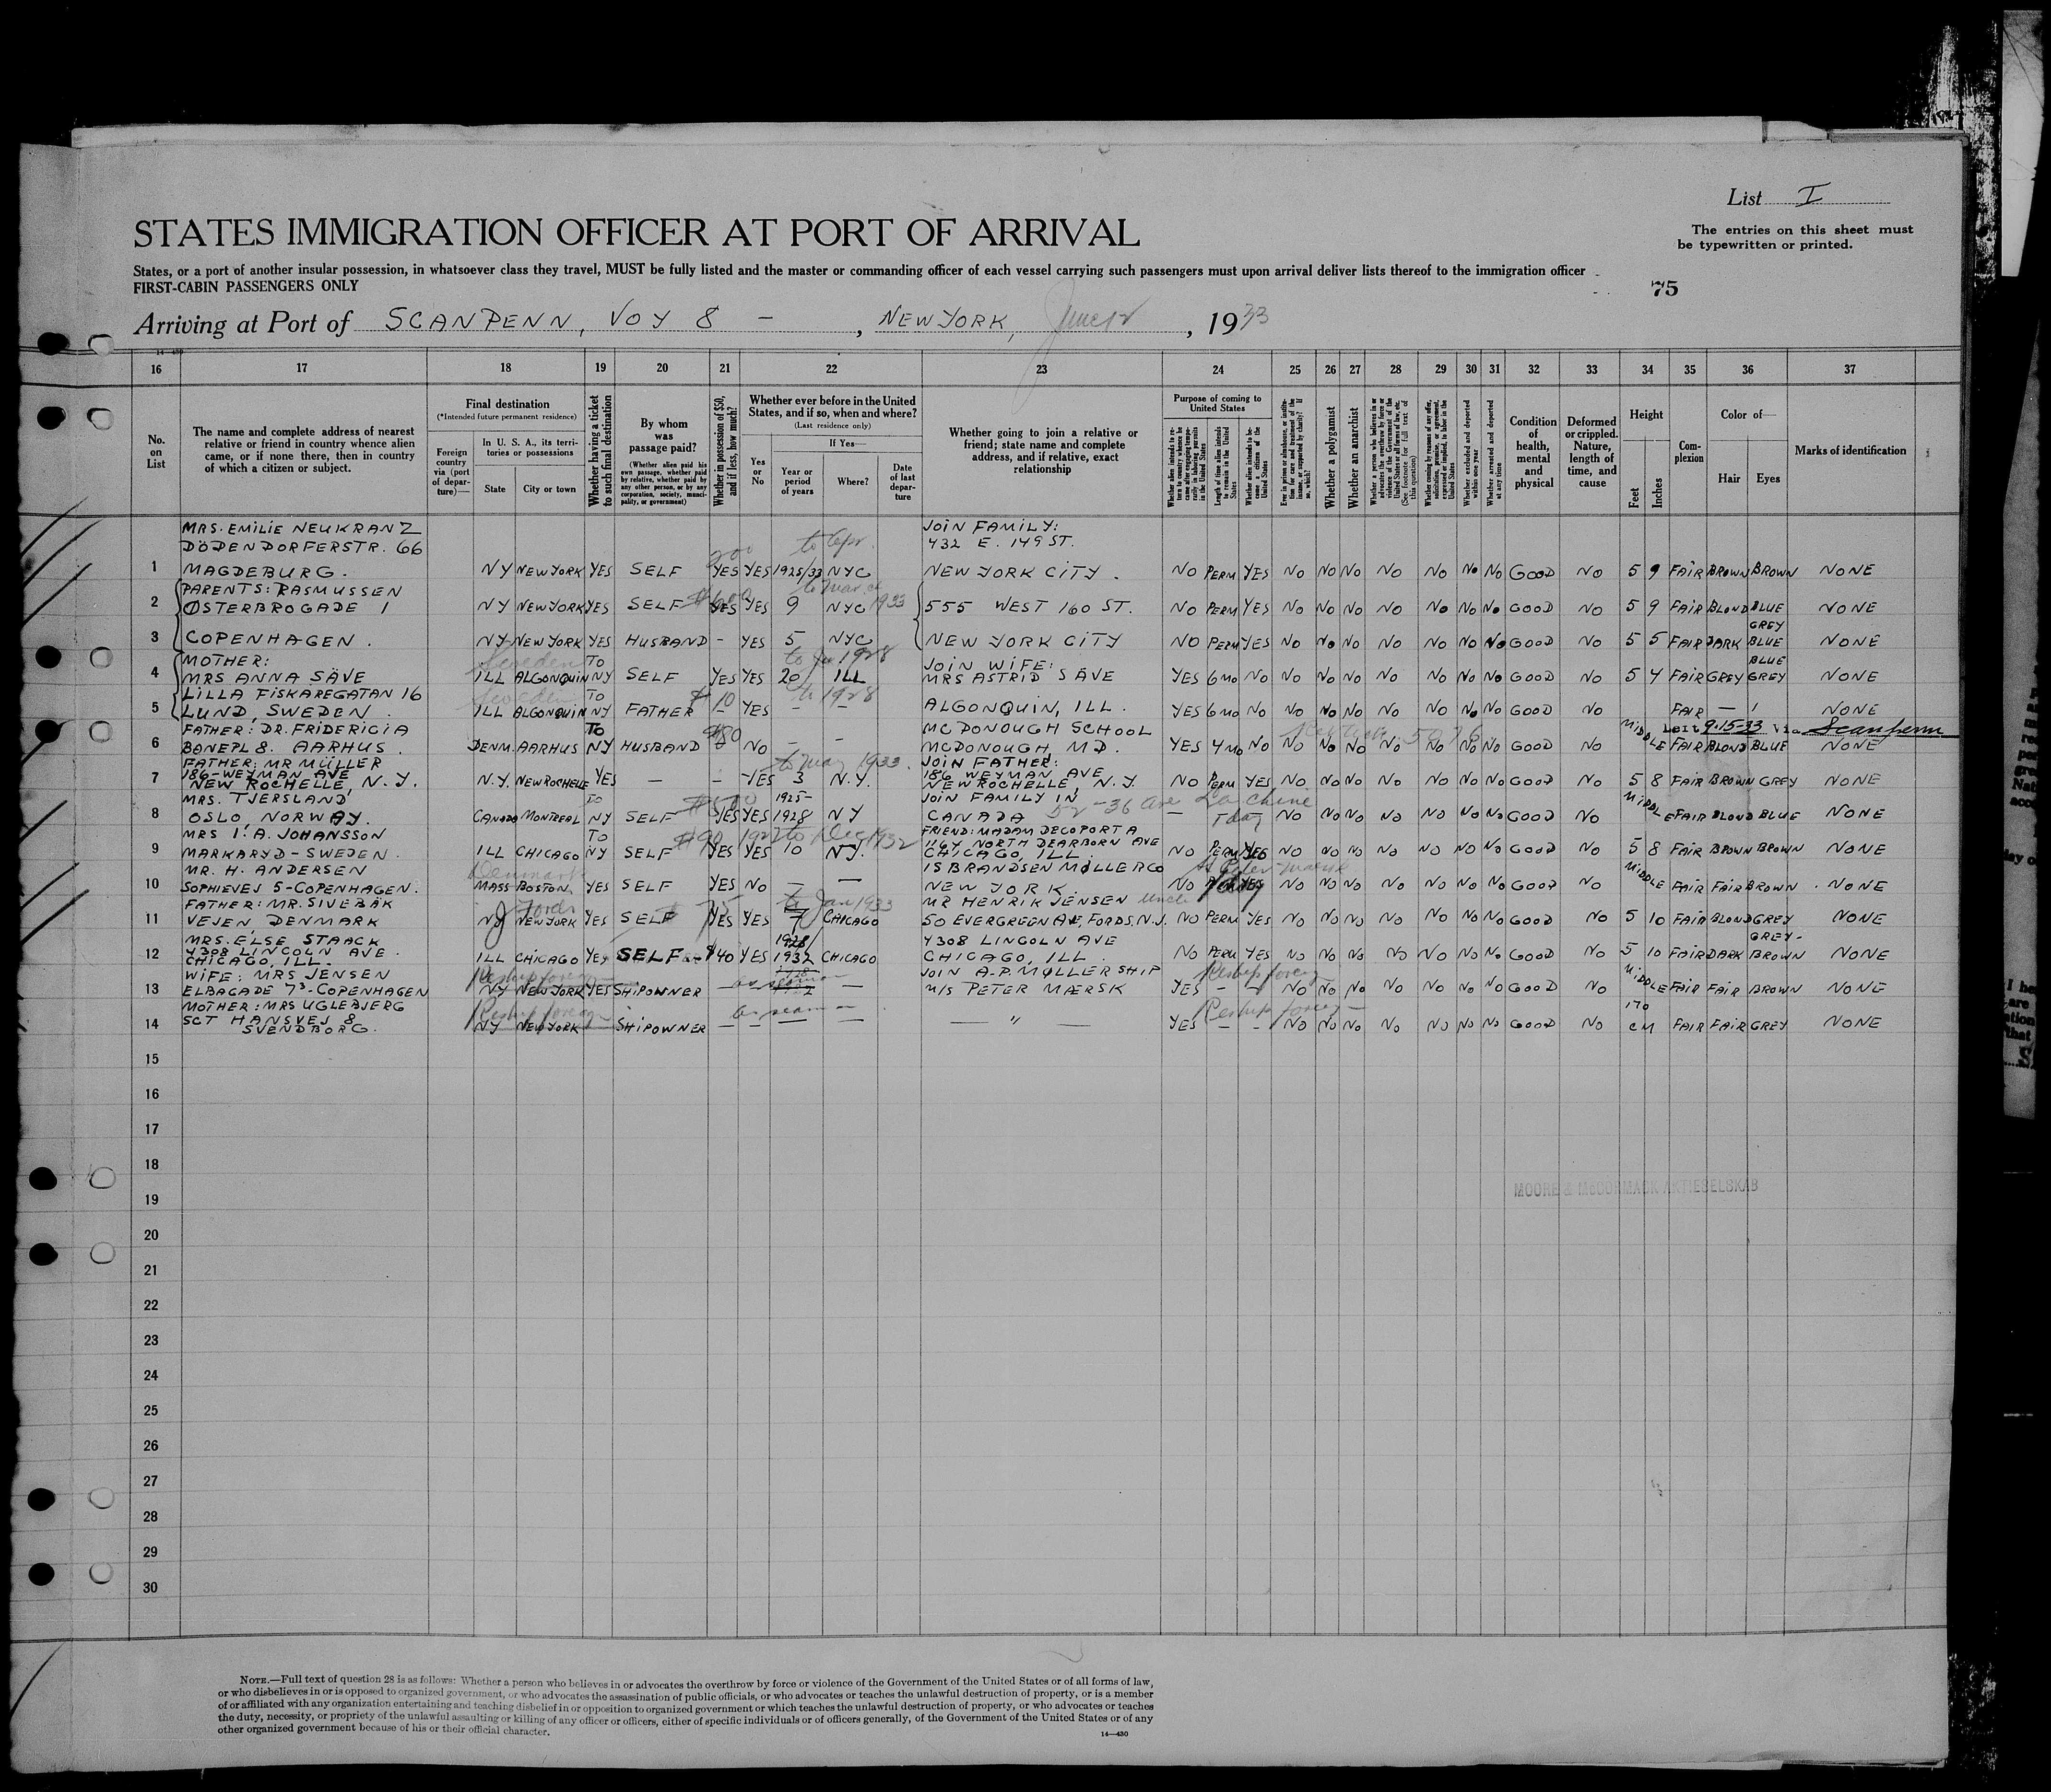 List I
STATES IMMIGRATION OFFICER AT PORT OF ARRIVAL
The entries on this sheet must
be typewritten or printed.
States, or a port of another insular possession, in whatsoever class they travel, MUST be fully listed and the master or commanding officer of each vessel carrying such passengers must upon arrival deliver lists thereof to the immigration officer
FIRST-CABIN PASSENGERS ONLY
75
Arriving at Port of SCANPENN, VOY 8 - , NEW YORK, June 12, 1933
16 17 18 19 20 21 22 23 24 25 26 27 28 29 30 31 32 33 34 35 36 37
No. on List
The name and complete address of nearest relative or friend in country whence alien came, or if none there, then in country of which a citizen or subject.
Final destination
(*Intended future permanent residence)
Foreign country via (port of departure)—
In U. S. A., its territories or possessions
State
City or town
Whether having a ticket to such final destination
By whom was passage paid?
(Whether alien paid his own passage, whether paid by relative, whether paid by any other person, or by any corporation, society, municipality, or government)
Whether in possession of $50, and if less, how much?
Whether ever before in the United States, and if so, when and where?
(Last residence only)
Yes or No
If Yes—
Year or period of years
Where?
Date of last departure
Whether going to join a relative or friend; state name and complete address, and if relative, exact relationship
Purpose of coming to United States
Length of time alien intends to remain in the United States
Whether alien intends to become a citizen of the United States
Whether a polygamist
Whether an anarchist
Whether excluded and deported within one year
Whether arrested and deported at any time
Condition of health, mental and physical
Deformed or crippled. Nature, length of time, and cause
Height
Feet
Inches
Complexion
Color of—
Hair
Eyes
Marks of identification
MRS. EMILIE NEUKRANZ JOIN FAMILY:
DÖDENDORFERSTR. 66 200 to Apr. 432 E. 149 ST.
1 MAGDEBURG. NY NEW YORK YES SELF YES YES 1925/33 NYC NEW YORK CITY. NO PERM YES NO NO NO NO NO NO NO GOOD NO 5 9 FAIR BROWN BROWN NONE
PARENTS: RASMUSSEN
2 ØSTERBROGADE 1 NY NEW YORK YES SELF YES YES 9 NYC 1933 555 WEST 160 ST. NO PERM YES NO NO NO NO NO NO NO GOOD NO 5 9 FAIR BLOND BLUE NONE
GREY
3 COPENHAGEN. NY NEW YORK YES HUSBAND - YES 5 NYC NEW YORK CITY NO PERM YES NO NO NO NO NO NO NO GOOD NO 5 5 FAIR DARK BLUE NONE
MOTHER: Sweden TO JOIN WIFE: BLUE
4 MRS ANNA SÄVE ILL ALGONQUIN NY SELF YES YES 20 ILL MRS ASTRID SÄVE YES 6 MO NO NO NO NO NO NO NO NO GOOD NO 5 4 FAIR GREY GREY NONE
LILLA FISKAREGATAN 16 Sweden TO $10 to 1928
5 LUND, SWEDEN. ILL ALGONQUIN NY FATHER - YES - - ALGONQUIN, ILL. YES 6 MO NO NO NO NO NO NO NO NO GOOD NO FAIR — NONE
FATHER: DR. FRIDERICIA TO $80 MCDONOUGH SCHOOL Left 9-15-33 Via Scanpenn
6 BANEPL 8. AARHUS. DENM. AARHUS NY HUSBAND NO - - MCDONOUGH, MD. YES 4 MO NO NO NO NO NO NO NO NO GOOD NO MIDDLE FAIR BLOND BLUE NONE
FATHER: MR MÜLLER to May 1933. JOIN FATHER:
7 186-WEYMAN AVE 186 WEYMAN AVE
NEW ROCHELLE, N.Y. N.Y. NEW ROCHELLE YES — - YES 3 N.Y. NEW ROCHELLE, N.Y. NO PERM YES NO NO NO NO NO NO NO GOOD NO 5 8 FAIR BROWN GREY NONE
MRS. TJERSLAND TO 1925- JOIN FAMILY IN 52-36 Ave Lachine
8 OSLO, NORWAY. CANADA MONTREAL NY SELF YES YES 1928 NY CANADA - NO NO NO NO NO NO NO GOOD NO MIDDLE FAIR BLOND BLUE NONE
MRS I. A. JOHANSSON TO $90 1922 to Dec 1932 FRIEND: MADAM DECOPORTA
1164 NORTH DEARBORN AVE
9 MARKARYD-SWEDEN. ILL CHICAGO NY SELF YES YES 10 NY. CHICAGO, ILL. NO PERM YES NO NO NO NO NO NO NO GOOD NO 5 8 FAIR BROWN BROWN NONE
MR. H. ANDERSEN Denmark 15 BRANDSEN MØLLER CO
10 SOPHIEVEJ 5-COPENHAGEN. MASS BOSTON, YES SELF YES NO — — NEW YORK. NO NO NO NO NO NO NO NO GOOD NO MIDDLE FAIR FAIR BROWN NONE
FATHER: MR. SIVEBÄK Fords to Jan 1933 MR HENRIK JENSEN uncle
11 VEJEN, DENMARK NJ NEW YORK YES SELF YES YES 7 CHICAGO 50 EVERGREEN AVE, FORDS. N.J. NO PERM YES NO NO NO NO NO NO NO GOOD NO 5 10 FAIR BLOND GREY NONE
MRS. ELSE STAACK 1928/ 4308 LINCOLN AVE GREY-
12 4308 LINCOLN AVE.
CHICAGO, ILL. ILL CHICAGO YES SELF $40 YES 1932 CHICAGO CHICAGO, ILL. NO PERM YES NO NO NO NO NO NO NO GOOD NO 5 10 FAIR DARK BROWN NONE
WIFE: MRS JENSEN Reship foreign as seaman JOIN A.P. MØLLER SHIP Reship foreign
13 ELBAGADE 7³-COPENHAGEN NY NEW YORK YES SHIPOWNER — — M/S PETER MÆRSK YES - - NO NO NO NO NO NO NO GOOD NO MIDDLE FAIR FAIR BROWN NONE
MOTHER: MRS UGLEBJERG Reship foreign as seaman Reship foreign 170
14 SCT HANSVEJ 8
SVENDBORG. NY NEW YORK — SHIPOWNER — — — — — " — YES - - NO NO NO NO NO NO NO GOOD NO CM FAIR FAIR GREY NONE
15
16
17
18
19
MOORE & McCORMACK AKTIESELSKAB
20
21
22
23
24
25
26
27
28
29
30
NOTE.—Full text of question 28 is as follows: Whether a person who believes in or advocates the overthrow by force or violence of the Government of the United States or of all forms of law,
or who disbelieves in or is opposed to organized government, or who advocates the assassination of public officials, or who advocates or teaches the unlawful destruction of property, or is a member
of or affiliated with any organization entertaining and teaching disbelief in or opposition to organized government or which teaches the unlawful destruction of property, or who advocates or teaches
the duty, necessity, or propriety of the unlawful assaulting or killing of any officer or officers, either of specific individuals or of officers generally, of the Government of the United States or of any
other organized government because of his or their official character.
14—430